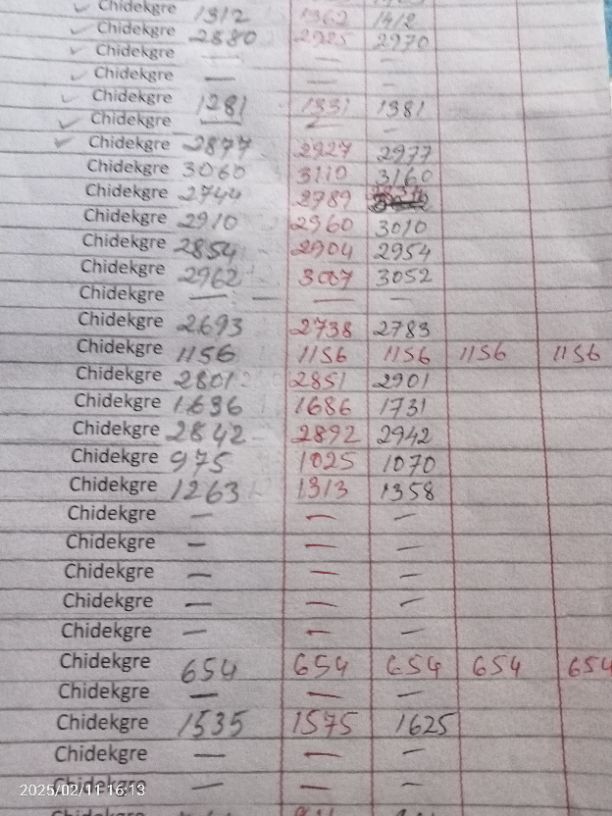 Chidekgre 1312 1362 1412
Chidekgre 2880 2925 2970
Chidekgre — — —
Chidekgre — — —
Chidekgre 1281 1331 1381
Chidekgre — — —
Chidekgre 2877 2927 2977
Chidekgre 3060 3110 3160
Chidekgre 2744 2789
Chidekgre 2910 2960 3010
Chidekgre 2854 2904 2954
Chidekgre 2962 3007 3052
Chidekgre — — —
Chidekgre 2693 2738 2783
Chidekgre 1156 1156 1156 1156 1156
Chidekgre 2801 2851 2901
Chidekgre 1636 1686 1731
Chidekgre 2842 2892 2942
Chidekgre 975 1025 1070
Chidekgre 1263 1313 1358
Chidekgre — — —
Chidekgre — — —
Chidekgre — — —
Chidekgre — — —
Chidekgre — — —
Chidekgre 654 654 654 654 654
Chidekgre — — —
Chidekgre 1535 1575 1625
Chidekgre — — —
Chidekgre — — —
2025/02/11 16:13